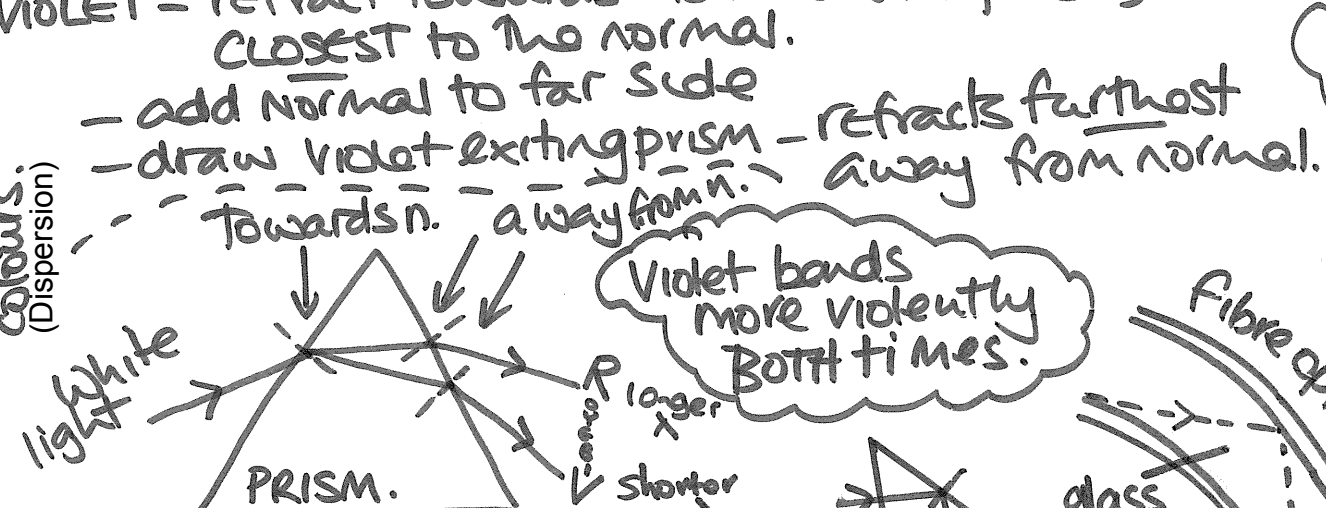 VIOLET - refract towards
CLOSEST to the normal.
- add Normal to far side
- draw violet exiting prism - refracts furthest
away from normal.
colours.
(Dispersion)
Towards n. away from n.
Violet bends
more violently
BOTH times.
White
light
R
longer
λ
V
shorter
PRISM.
Fibre
glass